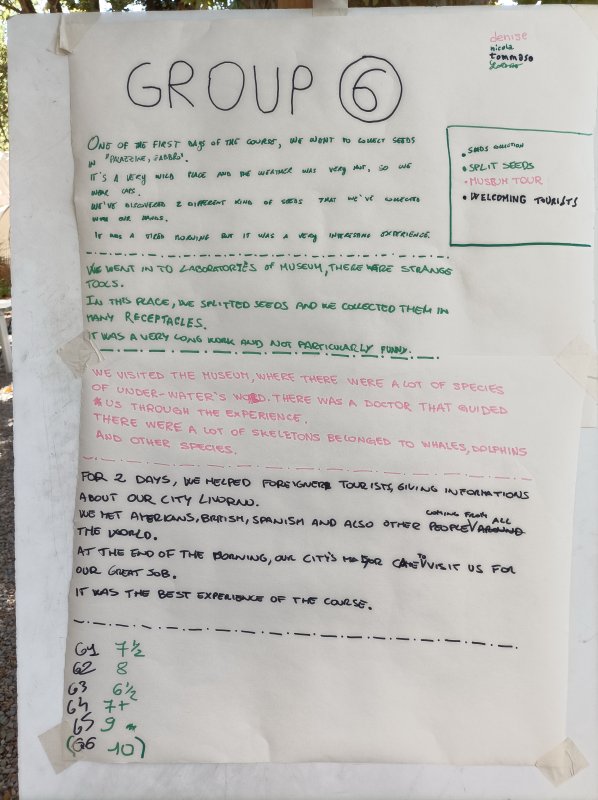 denise
nicola
tommaso
GROUP 6
ONE OF THE FIRST DAYS OF THE COURSE, WE WENT TO COLLECT SEEDS
IN "
IT'S A VERY WILD PLACE AND THE WEATHER WAS VERY HOT, SO WE
WEAR CAPS.
WE'VE DISCOVERED 2 DIFFERENT KIND OF SEEDS THAT WE'VE COLLECTED
WITH OUR HANDS.
IT WAS A TIRED MORNING BUT IT WAS A VERY INTERESTING EXPERIENCE.
• SEEDS COLLECTION
• SPLIT SEEDS
• MUSEUM TOUR
• WELCOMING TOURISTS
WE WENT IN TO LABORATORIES OF MUSEUM, THERE WERE STRANGE
TOOLS.
IN THIS PLACE, WE SPLITTED SEEDS AND WE COLLECTED THEM IN
MANY RECEPTACLES.
IT WAS A VERY LONG WORK AND NOT PARTICULARLY FUNNY.
WE VISITED THE MUSEUM, WHERE THERE WERE A LOT OF SPECIES
OF UNDER-WATER'S . THERE WAS A DOCTOR THAT GUIDED
US THROUGH THE EXPERIENCE.
THERE WERE A LOT OF SKELETONS BELONGED TO WHALES, DOLPHINS
AND OTHER SPECIES.
FOR 2 DAYS, WE HELPED FOREIGNER TOURISTS, GIVING INFORMATIONS
ABOUT OUR CITY LIVORNO.
WE MET AMERICANS, BRITISH, SPANISH AND ALSO OTHER PEOPLE COMING FROM ALL AROUND
THE WORLD.
AT THE END OF THE MORNING, OUR CITY'S MAJOR CAME TO VISIT US FOR
OUR GREAT JOB.
IT WAS THE BEST EXPERIENCE OF THE COURSE.
G1 7½
G2 8
G3 6½
G4 7+
G5 9
(G6 10)